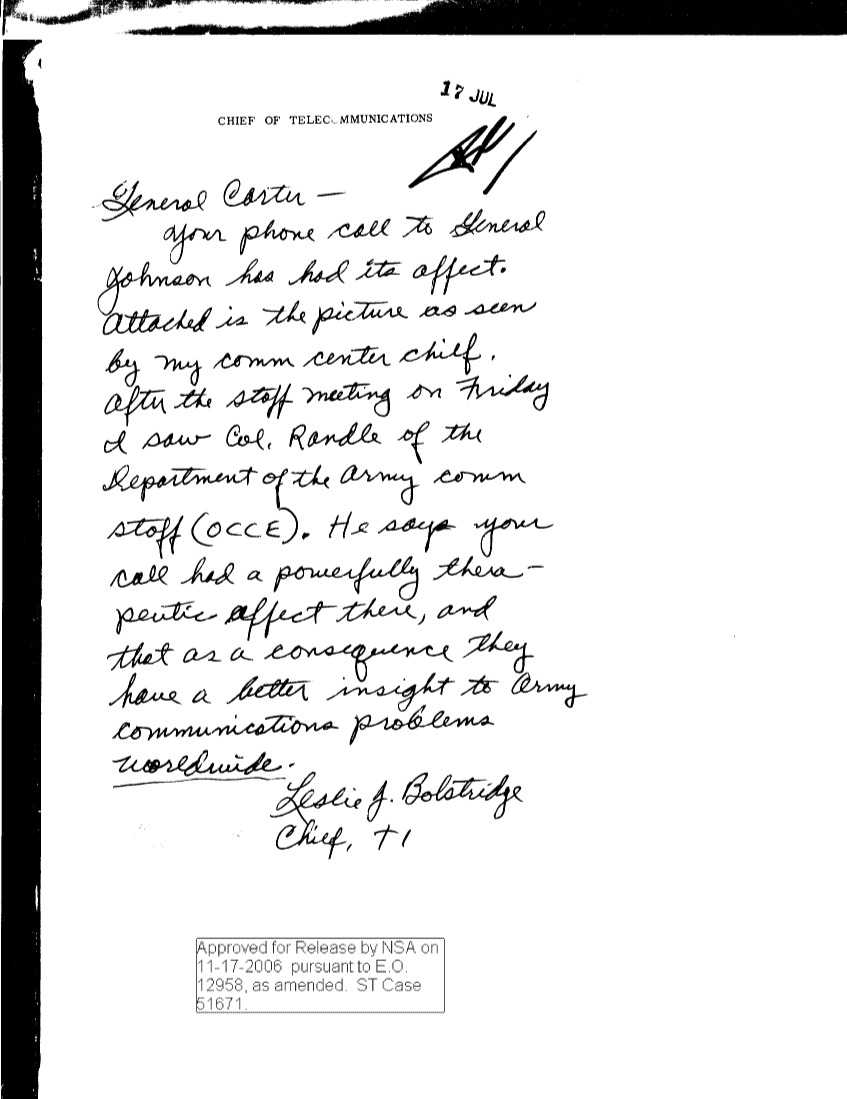 17 JUL
CHIEF OF TELEC MMUNICATIONS
General Carter —
Your phone call to General
Johnson has had its affect.
Attached is the picture as seen
by my comm center chief.
After the staff meeting on Friday
I saw Col. Randle of the
Department of the Army comm
staff (OCCE). He says your
call had a powerfully thera-
peutic affect there, and
that as a consequence they
have a better insight to Army
communications problems
worldwide.
Leslie J. Bolstridge
Chief, T1
Approved for Release by NSA on
11-17-2006 pursuant to E.O.
12958, as amended. ST Case
51671.